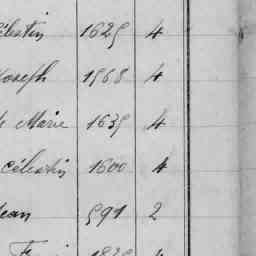 élestin 1625 4
Joseph 1968 4
Marie 1635 4
Célestin 1600 4
Jean 591 2